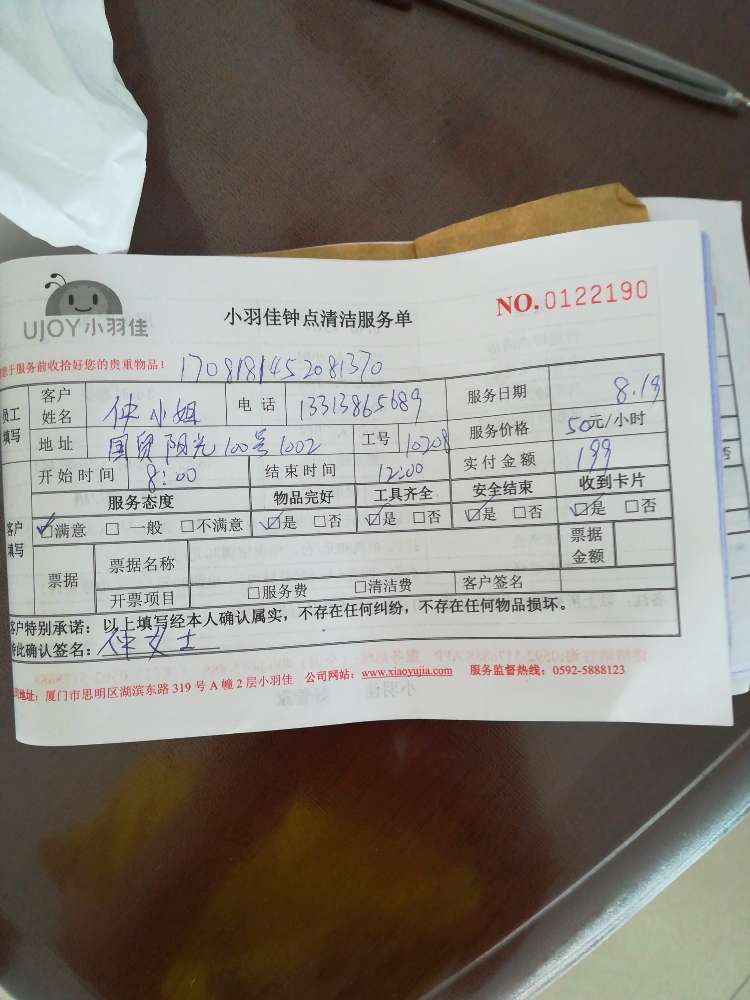 UJOY小羽佳
小羽佳钟点清洁服务单
NO.0122190
于服务前收拾好您的贵重物品！
1708181452081370
员工填写
客户姓名 仲小姐 电话 13313865689 服务日期 8.19
地址 国贸阳光100号1002 工号 10208 服务价格 50元/小时
开始时间 8:00 结束时间 12:00 实付金额 199
客户填写
服务态度 物品完好 工具齐全 安全结束 收到卡片
☑满意 □一般 □不满意 ☑是 □否 ☑是 □否 ☑是 □否 ☑是 □否
票据 票据名称 票据金额
开票项目 □服务费 □清洁费 客户签名
客户特别承诺：以上填写经本人确认属实，不存在任何纠纷，不存在任何物品损坏。
此确认签名：仲女士
地址：厦门市思明区湖滨东路319号A幢2层小羽佳 公司网站：www.xiaoyujia.com 服务监督热线：0592-5888123